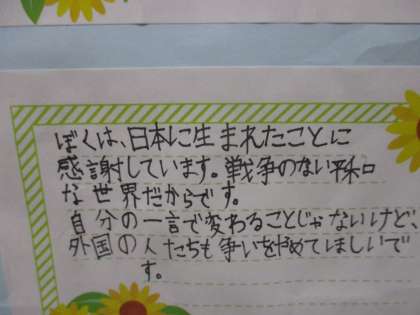 ぼくは、日本に生まれたことに
感謝しています。戦争のない平和
な世界だからです。
自分の一言で変わることじゃないけど、
外国の人たちも争いをやめてほしいで
す。